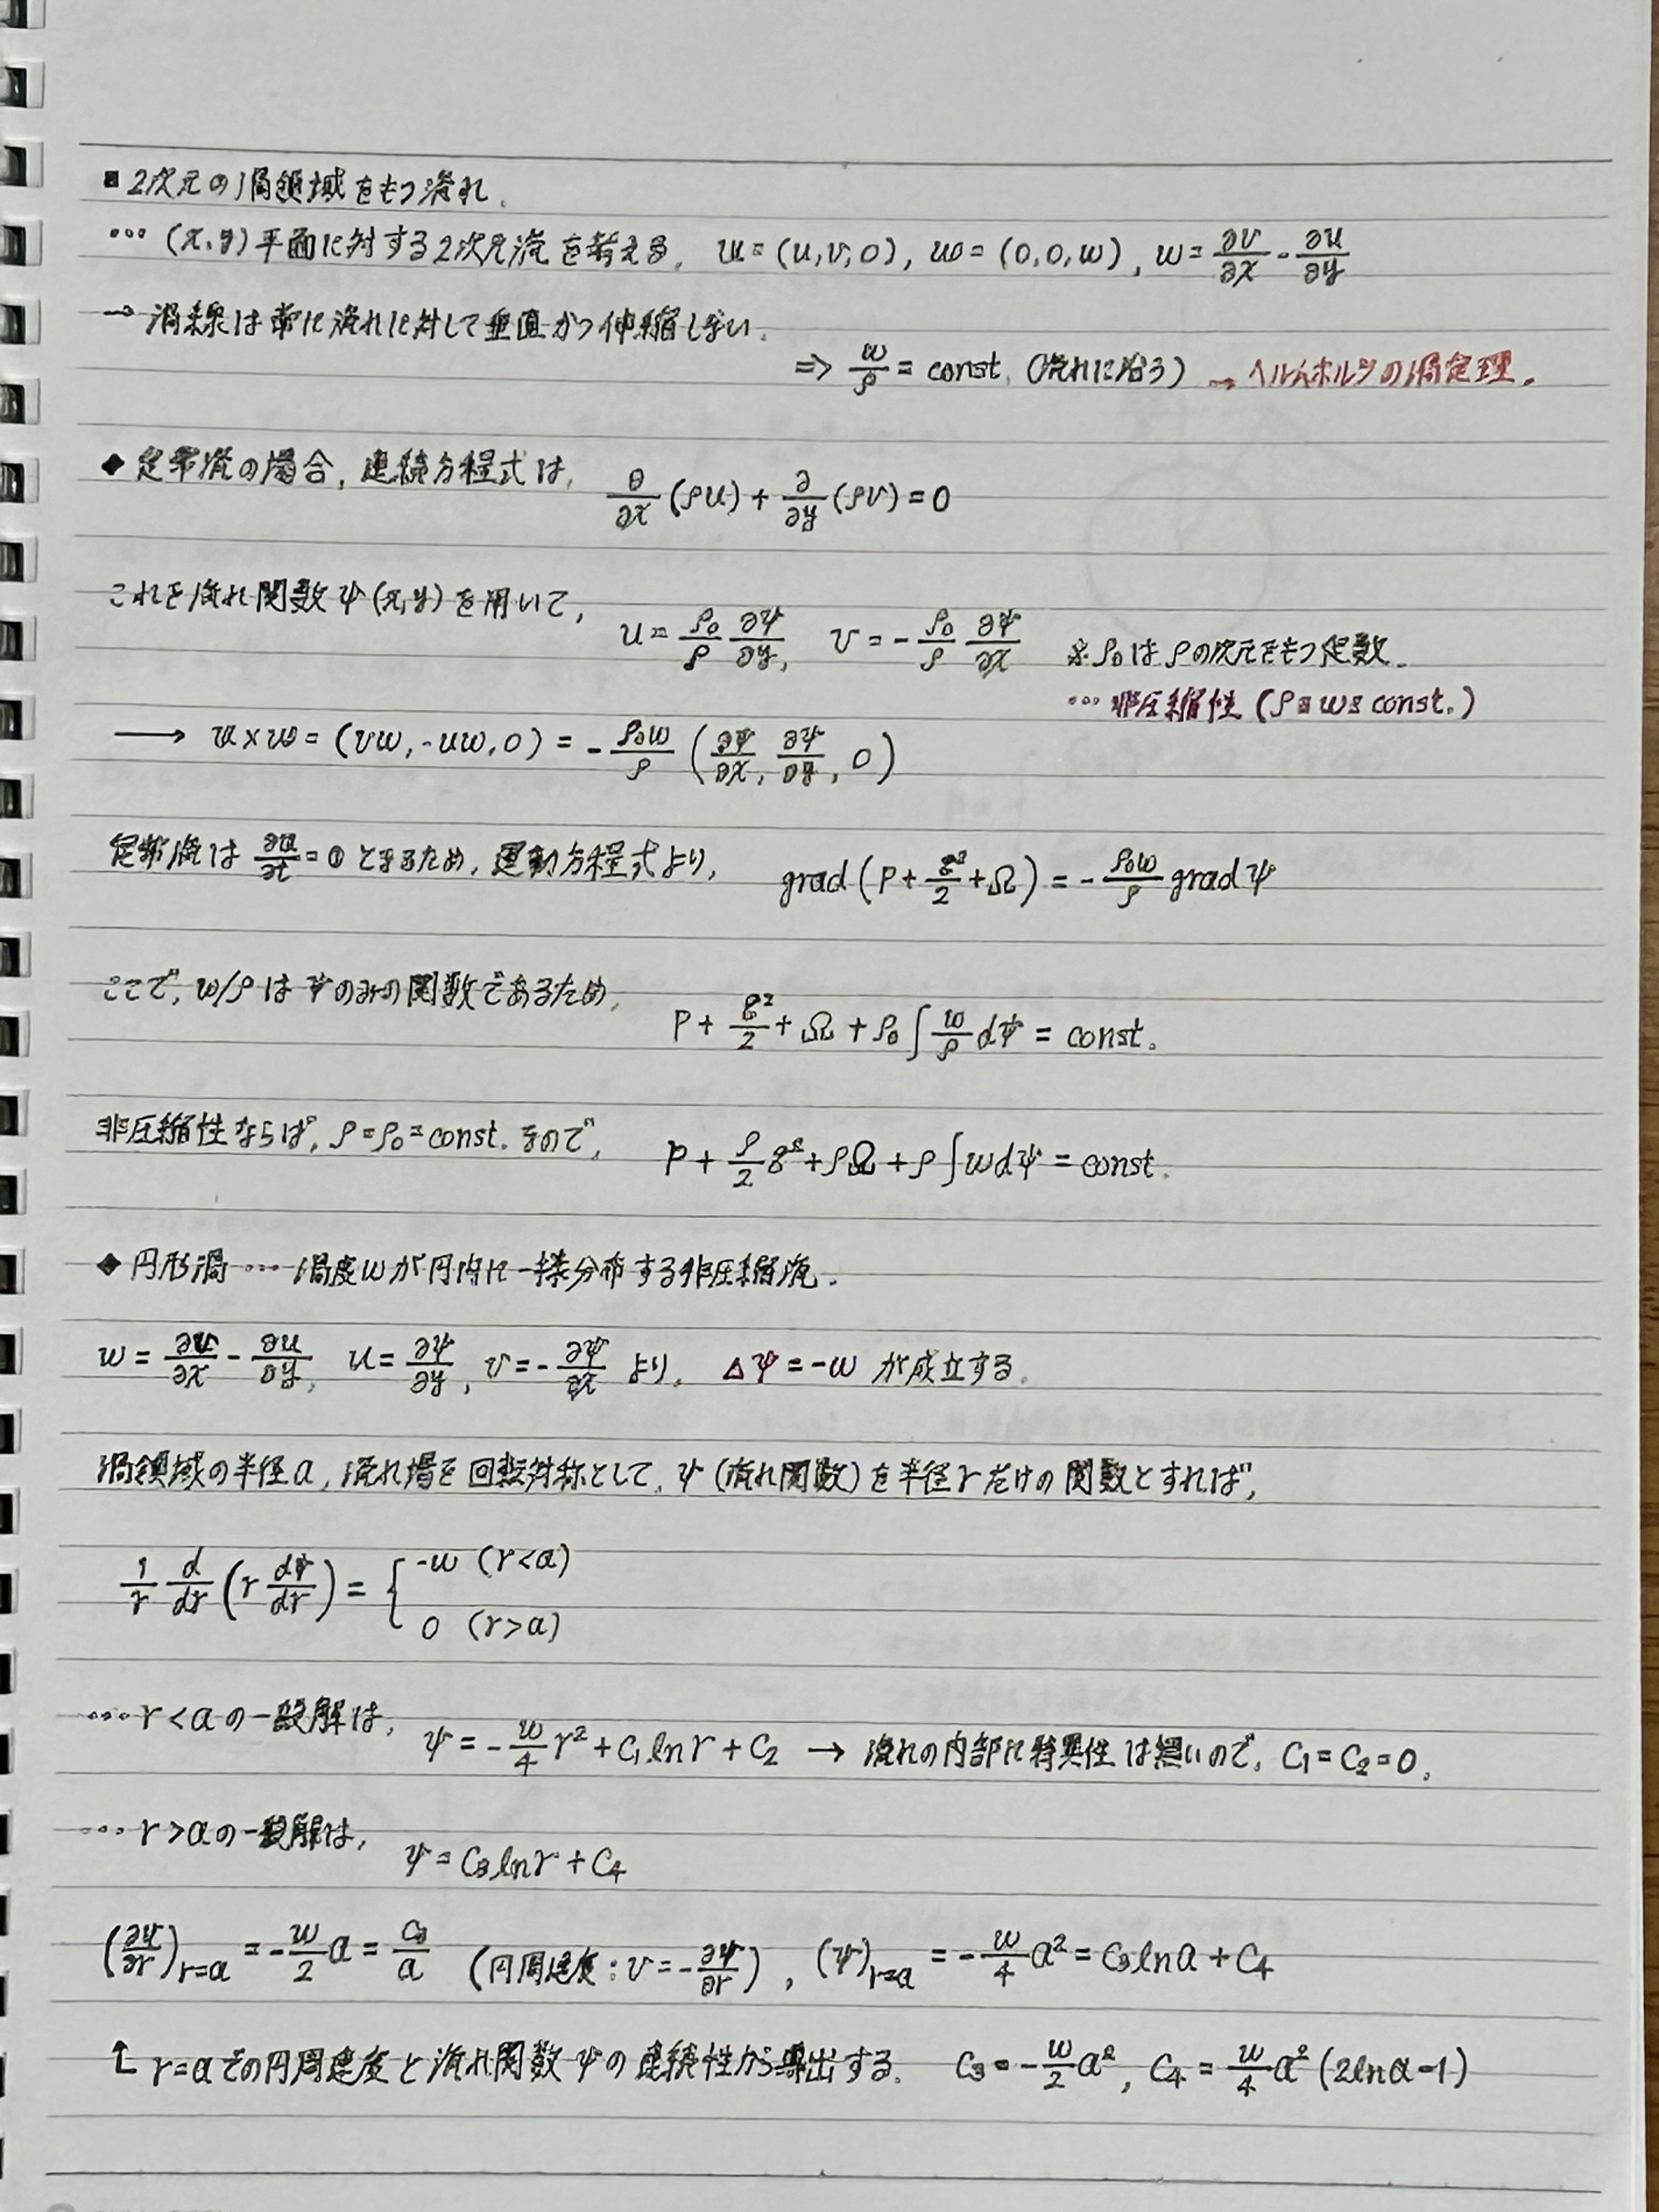 ■ 2次元の渦領域をもつ流れ.
… (x,y)平面に対する2次元流を考える. u = (u,v,0), ω = (0,0,ω), ω = ∂v/∂x - ∂u/∂y
→ 渦線は常に流れに対して垂直かつ伸縮しない.
⇒ ω/ρ = const. (流れに沿う) → ヘルムホルツの渦定理.
◆ 定常流の場合, 連続方程式は, ∂/∂x (ρu) + ∂/∂y (ρv) = 0
これを流れ関数 ψ(x,y) を用いて, u = ρ₀/ρ ∂ψ/∂y, v = - ρ₀/ρ ∂ψ/∂x ※ρ₀は ρの次元をもつ定数.
… 非圧縮性 (ρ = ω = const.)
⟶ u×ω = (vω, -uω, 0) = - ρ₀ω/ρ (∂ψ/∂x, ∂ψ/∂y, 0)
定常流は ∂u/∂t = 0 となるため, 運動方程式より, grad(P + q²/2 + Ω) = - ρ₀ω/ρ grad ψ
ここで, ω/ρ は ψのみの関数であるため, P + q²/2 + Ω + ρ₀ ∫ ω/ρ dψ = const.
非圧縮性ならば, ρ = ρ₀ = const. なので, p + ρ/2 q² + ρΩ + ρ ∫ ω dψ = const.
◆ 円形渦 … 渦度ωが円内に一様分布する非圧縮流.
ω = ∂v/∂x - ∂u/∂y, u = ∂ψ/∂y, v = - ∂ψ/∂x より, Δψ = -ω が成立する.
渦領域の半径a, 流れ場を回転対称として, ψ (流れ関数) を半径rだけの関数とすれば,
1/r d/dr (r dψ/dr) = { -ω (r<a)
0 (r>a)
… r<aの一般解は, ψ = - ω/4 r² + C₁ ln r + C₂ → 流れの内部に特異性は無いので, C₁ = C₂ = 0.
… r>aの一般解は, ψ = C₃ ln r + C₄
(∂ψ/∂r)r=a = - ω/2 a = C₃/a (円周速度 : v = - ∂ψ/∂r), (ψ)r=a = - ω/4 a² = C₃ ln a + C₄
↑ r=aでの円周速度と流れ関数ψの連続性から導出する. C₃ = - ω/2 a², C₄ = ω/4 a² (2ln a - 1)